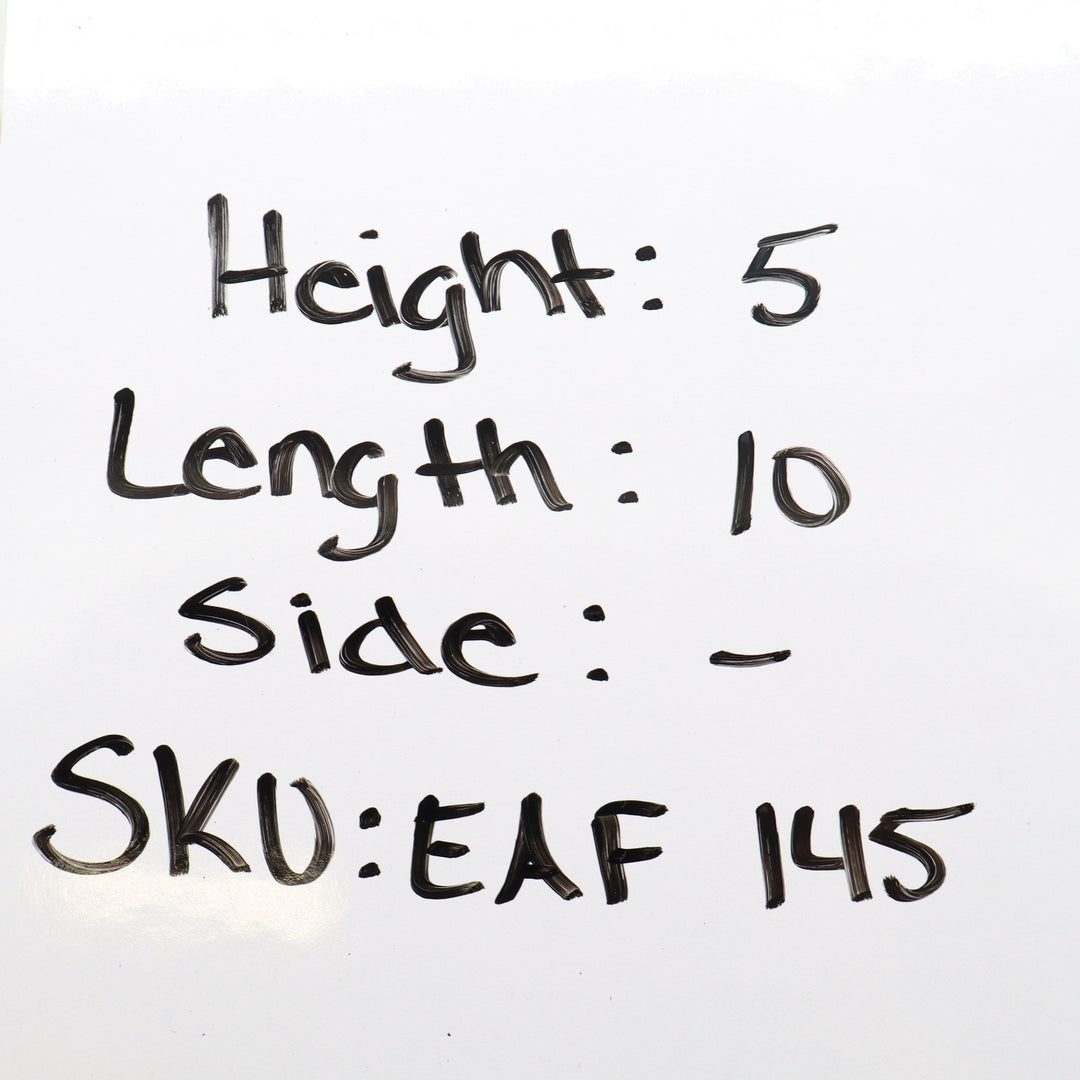 Height: 5
Length: 10
Side: -
SKU: EAF 145